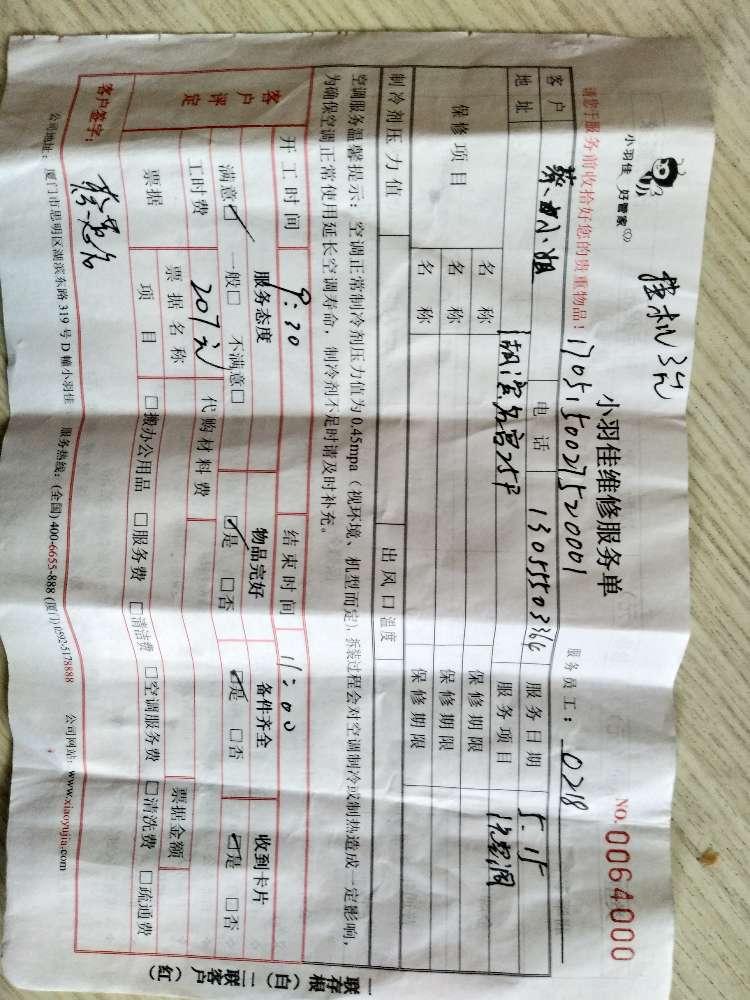 小羽佳 好管家
挂机3元
小羽佳维修服务单
服务员工： 0218
No. 0064000
请您于服务前收拾好您的贵重物品！
1705150027520001
客户 蔡小姐 电话 13055503366 服务日期 5.15
地址 湖滨名宫25P 服务项目 洗空调
保修项目 名称 保修期限
名称 保修期限
名称 保修期限
制冷剂压力值 出风口温度
空调服务温馨提示：空调正常制冷剂压力值为0.45mpa（视环境、机型而定），拆装过程会对空调制冷或制热造成一定影响，
为确保空调正常使用延长空调寿命，制冷剂不足时请及时补充。
客户评定
开工时间 9:30 结束时间 11:00
服务态度 物品完好 备件齐全 收到卡片
满意☑ 一般□ 不满意□ ☑是 □否 ☑是 □否 ☑是 □否
工时费 207元 代购材料费
票据 票据名称 票据金额
项目 □搬办公用品 □服务费 □清洁费 □空调服务费 □清洗费 □疏通费
客户签字：
公司地址：厦门市思明区湖滨东路319号D幢小羽佳 服务热线：(全国)400-6655-888 (厦门)0592-5178888 公司网站：www.xiaoyujia.com
一联存根（白）一联客户（红）